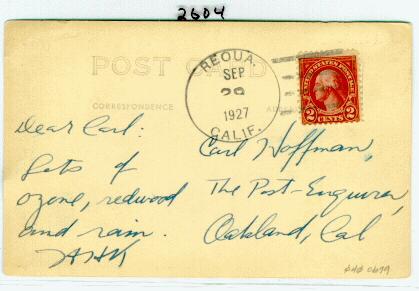 2604
POST CARD
CORRESPONDENCE
REQUA.
SEP
29
1927
CALIF.
UNITED STATES POSTAGE
2 CENTS 2
Dear Carl:
Lots of
ozone, redwood
and rain.
Carl Hoffman,
The Post-Enquirer,
Oakland, Cal